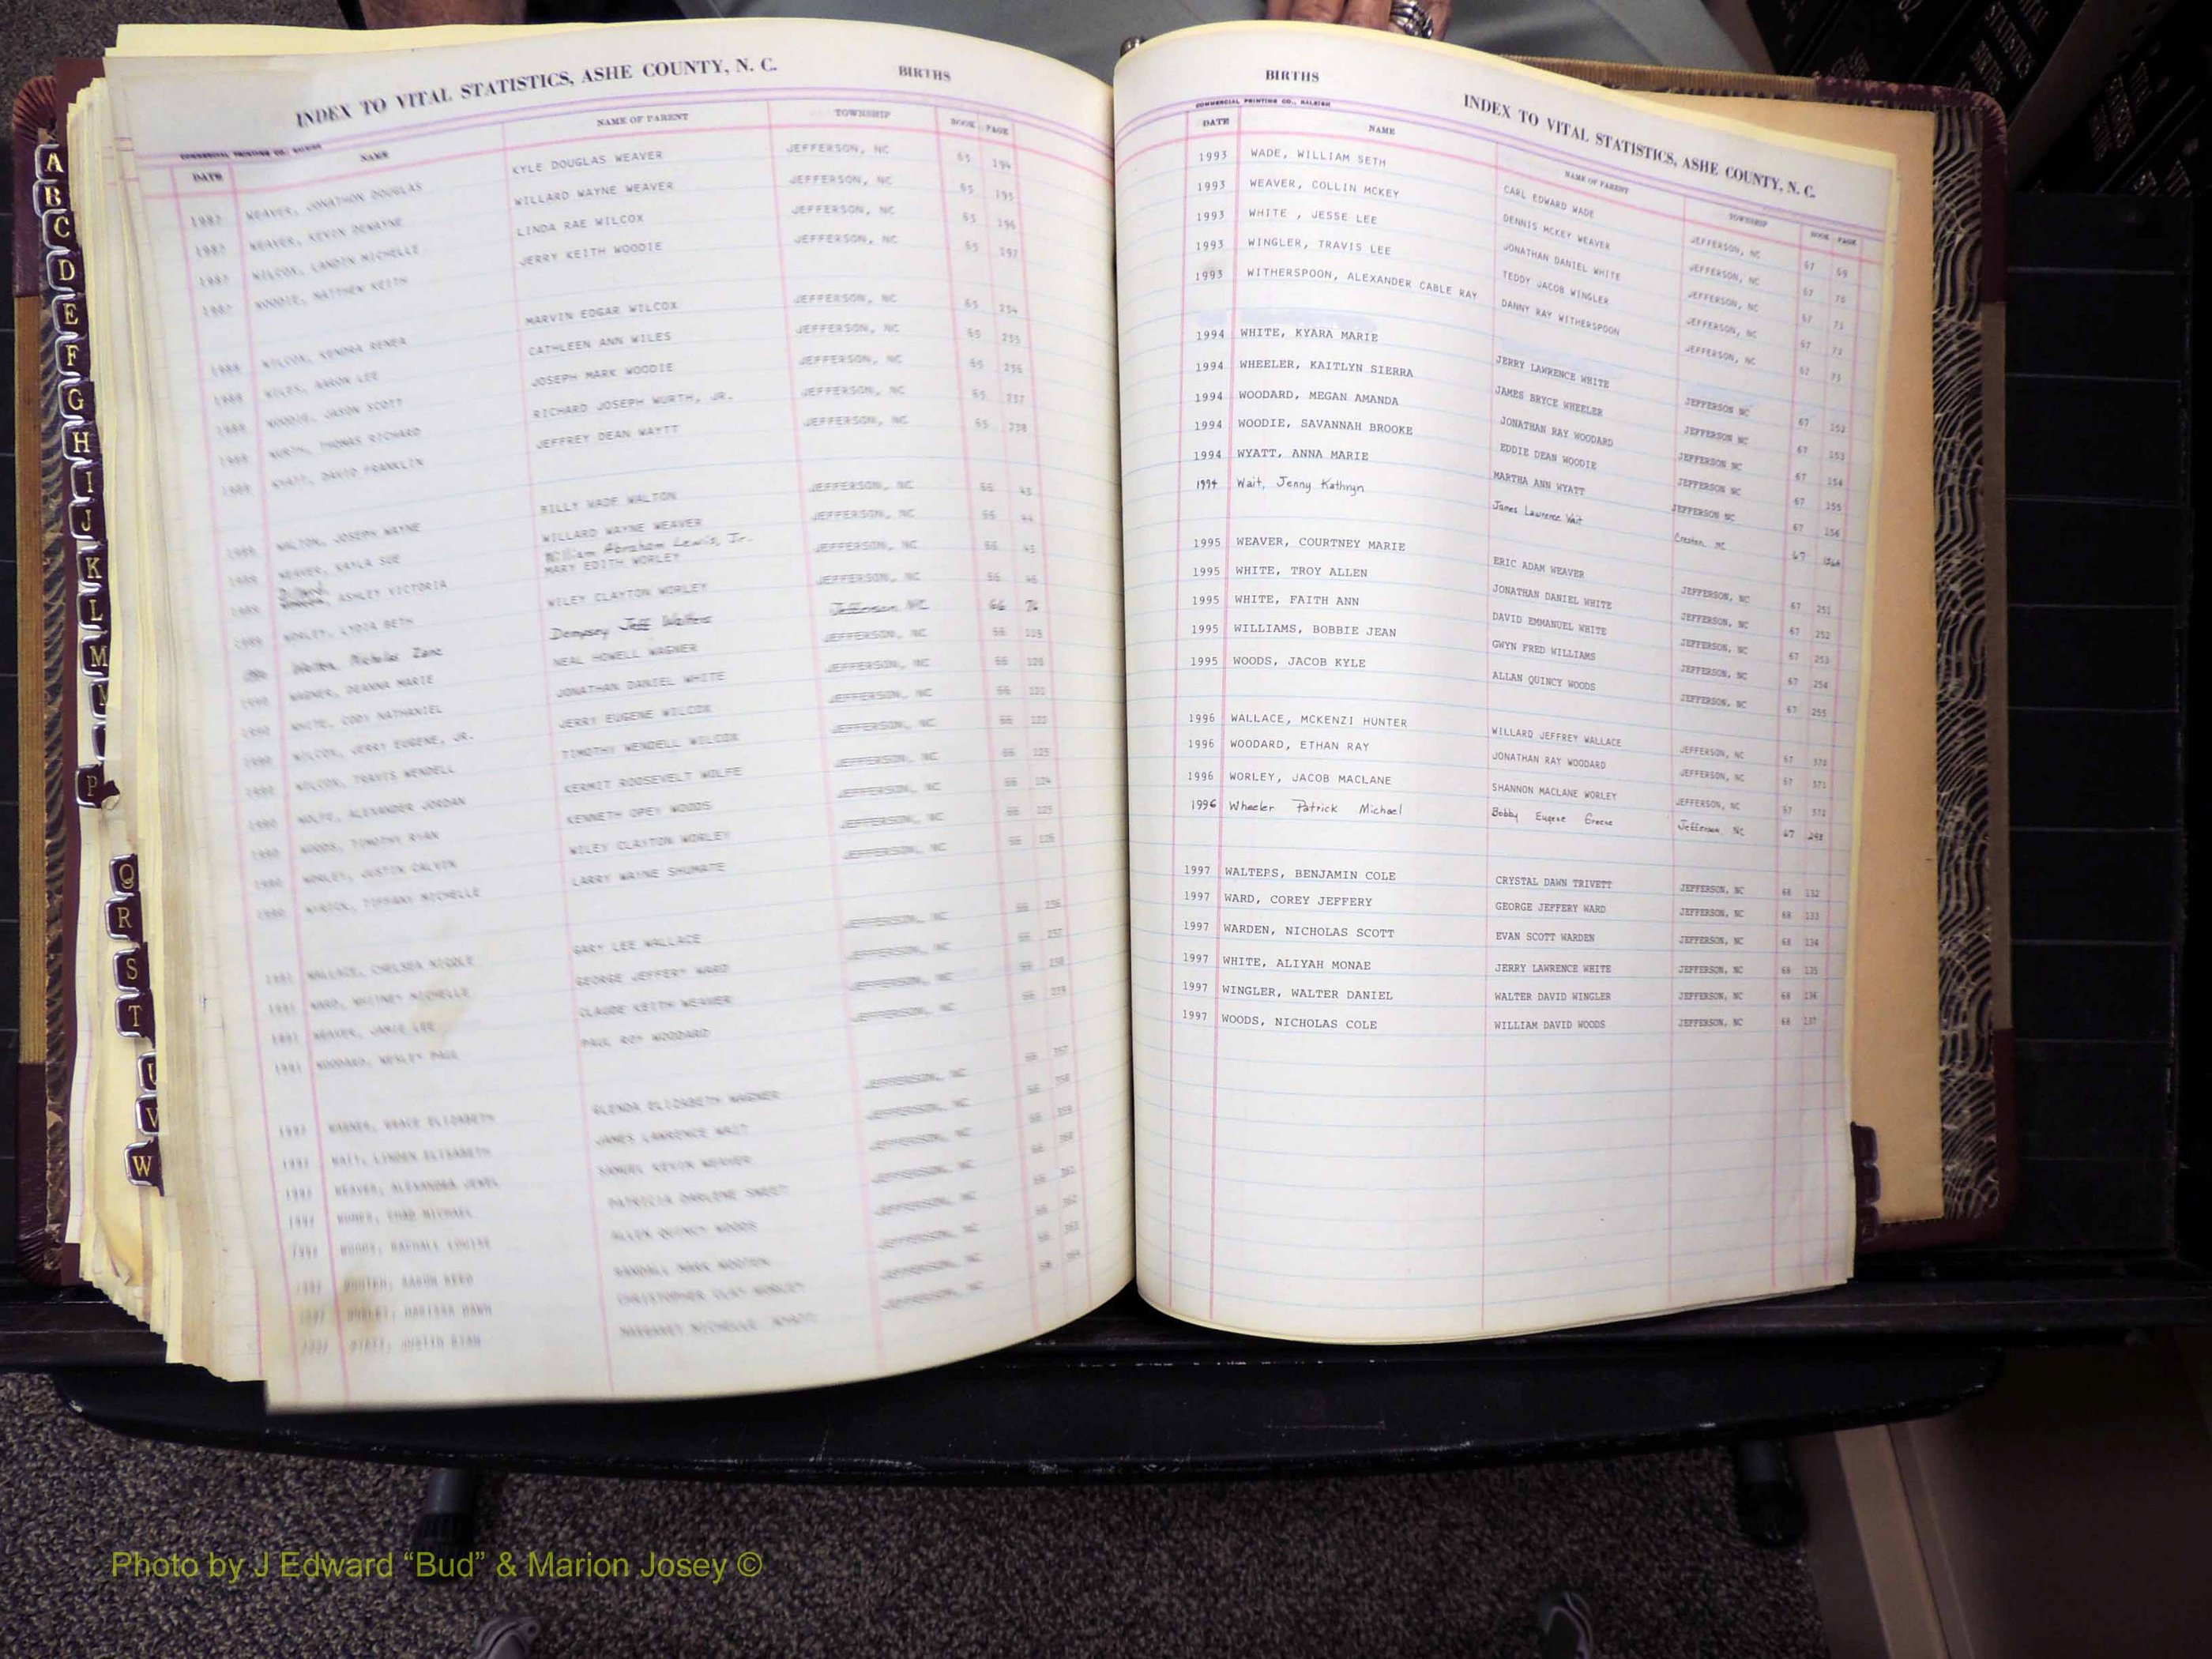 INDEX TO VITAL STATISTICS, ASHE COUNTY, N. C. BIRTHS
COMMERCIAL PRINTING CO., RALEIGH
DATE NAME NAME OF PARENT TOWNSHIP BOOK PAGE
1987 WEAVER, JONATHON DOUGLAS KYLE DOUGLAS WEAVER JEFFERSON, NC 65 194
1987 WEAVER, KEVIN DEWAYNE WILLARD WAYNE WEAVER JEFFERSON, NC 65 195
1987 WILCOX, LANDIN MICHELLE LINDA RAE WILCOX JEFFERSON, NC 65 196
1987 WOODIE, MATTHEW KEITH JERRY KEITH WOODIE JEFFERSON, NC 65 197
1988 WILCOX, KENDRA RENEA MARVIN EDGAR WILCOX JEFFERSON, NC 65 234
1988 WILES, AARON LEE CATHLEEN ANN WILES JEFFERSON, NC 65 235
1988 WOODIE, JASON SCOTT JOSEPH MARK WOODIE JEFFERSON, NC 65 236
1988 WURTH, THOMAS RICHARD RICHARD JOSEPH WURTH, JR. JEFFERSON, NC 65 237
1988 WYATT, DAVID FRANKLIN JEFFREY DEAN WAYTT JEFFERSON, NC 65 238
1989 WALTON, JOSEPH WAYNE BILLY WADE WALTON JEFFERSON, NC 66 43
1989 WEAVER, KAYLA SUE WILLARD WAYNE WEAVER JEFFERSON, NC 66 44
William Abraham Lewis, Jr.
1989 ASHLEY VICTORIA MARY EDITH WORLEY JEFFERSON, NC 66 45
1989 WORLEY, LYDIA BETH WILEY CLAYTON WORLEY JEFFERSON, NC 66 46
Nicholas Zane Dempsey Jeff Walters Jefferson NC 66 76
1990 WAGNER, DEANNA MARIE NEAL HOWELL WAGNER JEFFERSON, NC 66 119
1990 WHITE, CODY NATHANIEL JONATHAN DANIEL WHITE JEFFERSON, NC 66 120
1990 WILCOX, JERRY EUGENE, JR. JERRY EUGENE WILCOX JEFFERSON, NC 66 121
1990 WILCOX, TRAVIS WENDELL TIMOTHY WENDELL WILCOX JEFFERSON, NC 66 122
1990 WOLFE, ALEXANDER JORDAN KERMIT ROOSEVELT WOLFE JEFFERSON, NC 66 123
1990 WOODS, TIMOTHY RYAN KENNETH OPEY WOODS JEFFERSON, NC 66 124
1990 WORLEY, JUSTIN CALVIN WILEY CLAYTON WORLEY JEFFERSON, NC 66 125
1990 TIFFANY MICHELLE LARRY WAYNE SHUMATE JEFFERSON, NC 66 126
1991 WALLACE, CHELSEA NICOLE GARY LEE WALLACE JEFFERSON, NC 66 236
1991 WARD, WHITNEY MICHELLE GEORGE JEFFERY WARD JEFFERSON, NC 66 237
1991 WEAVER, JAMIE LEE CLAUDE KEITH WEAVER JEFFERSON, NC 66 238
1991 WOODARD, WESLEY PAUL PAUL ROY WOODARD JEFFERSON, NC 66 239
1992 WAGNER, GRACE ELIZABETH GLENDA ELIZABETH WAGNER JEFFERSON, NC 66 357
1992 WAIT, LINDEN ELISABETH JAMES LAWRENCE WAIT JEFFERSON, NC 66 358
1992 WEAVER, ALEXANDRA JEWEL SAMUEL KEVIN WEAVER JEFFERSON, NC 66 359
1992 CHAD MICHAEL PATRICIA DARLENE SWEET JEFFERSON, NC 66 360
1992 WOODS, RACHALL LOUISE ALLEN QUINCY WOODS JEFFERSON, NC 66 361
1992 WOOTEN, AARON REED RANDALL MARK WOOTEN JEFFERSON, NC 66 362
1992 WORLEY, DARISSA DAWN CHRISTOPHER CLAY WORLEY JEFFERSON, NC 66 363
1992 WYATT, JUSTIN RYAN MARGARET MICHELLE WYATT JEFFERSON, NC 66 364
BIRTHS INDEX TO VITAL STATISTICS, ASHE COUNTY, N. C.
COMMERCIAL PRINTING CO., RALEIGH
DATE NAME NAME OF PARENT TOWNSHIP BOOK PAGE
1993 WADE, WILLIAM SETH CARL EDWARD WADE JEFFERSON, NC 67 69
1993 WEAVER, COLLIN MCKEY DENNIS MCKEY WEAVER JEFFERSON, NC 67 70
1993 WHITE , JESSE LEE JONATHAN DANIEL WHITE JEFFERSON, NC 67 71
1993 WINGLER, TRAVIS LEE TEDDY JACOB WINGLER JEFFERSON, NC 67 72
1993 WITHERSPOON, ALEXANDER CABLE RAY DANNY RAY WITHERSPOON JEFFERSON, NC 67 73
1994 WHITE, KYARA MARIE JERRY LAWRENCE WHITE JEFFERSON NC 67 152
1994 WHEELER, KAITLYN SIERRA JAMES BRYCE WHEELER JEFFERSON NC 67 153
1994 WOODARD, MEGAN AMANDA JONATHAN RAY WOODARD JEFFERSON NC 67 154
1994 WOODIE, SAVANNAH BROOKE EDDIE DEAN WOODIE JEFFERSON NC 67 155
1994 WYATT, ANNA MARIE MARTHA ANN WYATT JEFFERSON NC 67 156
1994 Wait, Jenny Kathryn James Lawrence Wait Creston NC 67
1995 WEAVER, COURTNEY MARIE ERIC ADAM WEAVER JEFFERSON, NC 67 251
1995 WHITE, TROY ALLEN JONATHAN DANIEL WHITE JEFFERSON, NC 67 252
1995 WHITE, FAITH ANN DAVID EMMANUEL WHITE JEFFERSON, NC 67 253
1995 WILLIAMS, BOBBIE JEAN GWYN FRED WILLIAMS JEFFERSON, NC 67 254
1995 WOODS, JACOB KYLE ALLAN QUINCY WOODS JEFFERSON, NC 67 255
1996 WALLACE, MCKENZI HUNTER WILLARD JEFFREY WALLACE JEFFERSON, NC 67 370
1996 WOODARD, ETHAN RAY JONATHAN RAY WOODARD JEFFERSON, NC 67 371
1996 WORLEY, JACOB MACLANE SHANNON MACLANE WORLEY JEFFERSON, NC 67 372
1996 Wheeler Patrick Michael Bobby Eugene Greene Jefferson, NC 67 298
1997 WALTERS, BENJAMIN COLE CRYSTAL DAWN TRIVETT JEFFERSON, NC 68 132
1997 WARD, COREY JEFFERY GEORGE JEFFERY WARD JEFFERSON, NC 68 133
1997 WARDEN, NICHOLAS SCOTT EVAN SCOTT WARDEN JEFFERSON, NC 68 134
1997 WHITE, ALIYAH MONAE JERRY LAWRENCE WHITE JEFFERSON, NC 68 135
1997 WINGLER, WALTER DANIEL WALTER DAVID WINGLER JEFFERSON, NC 68 136
1997 WOODS, NICHOLAS COLE WILLIAM DAVID WOODS JEFFERSON, NC 68 137
A
B
C
D
E
F
G
H
I
J
K
L
M
P
Q
R
S
T
U
V
W
Photo by J Edward “Bud” & Marion Josey ©